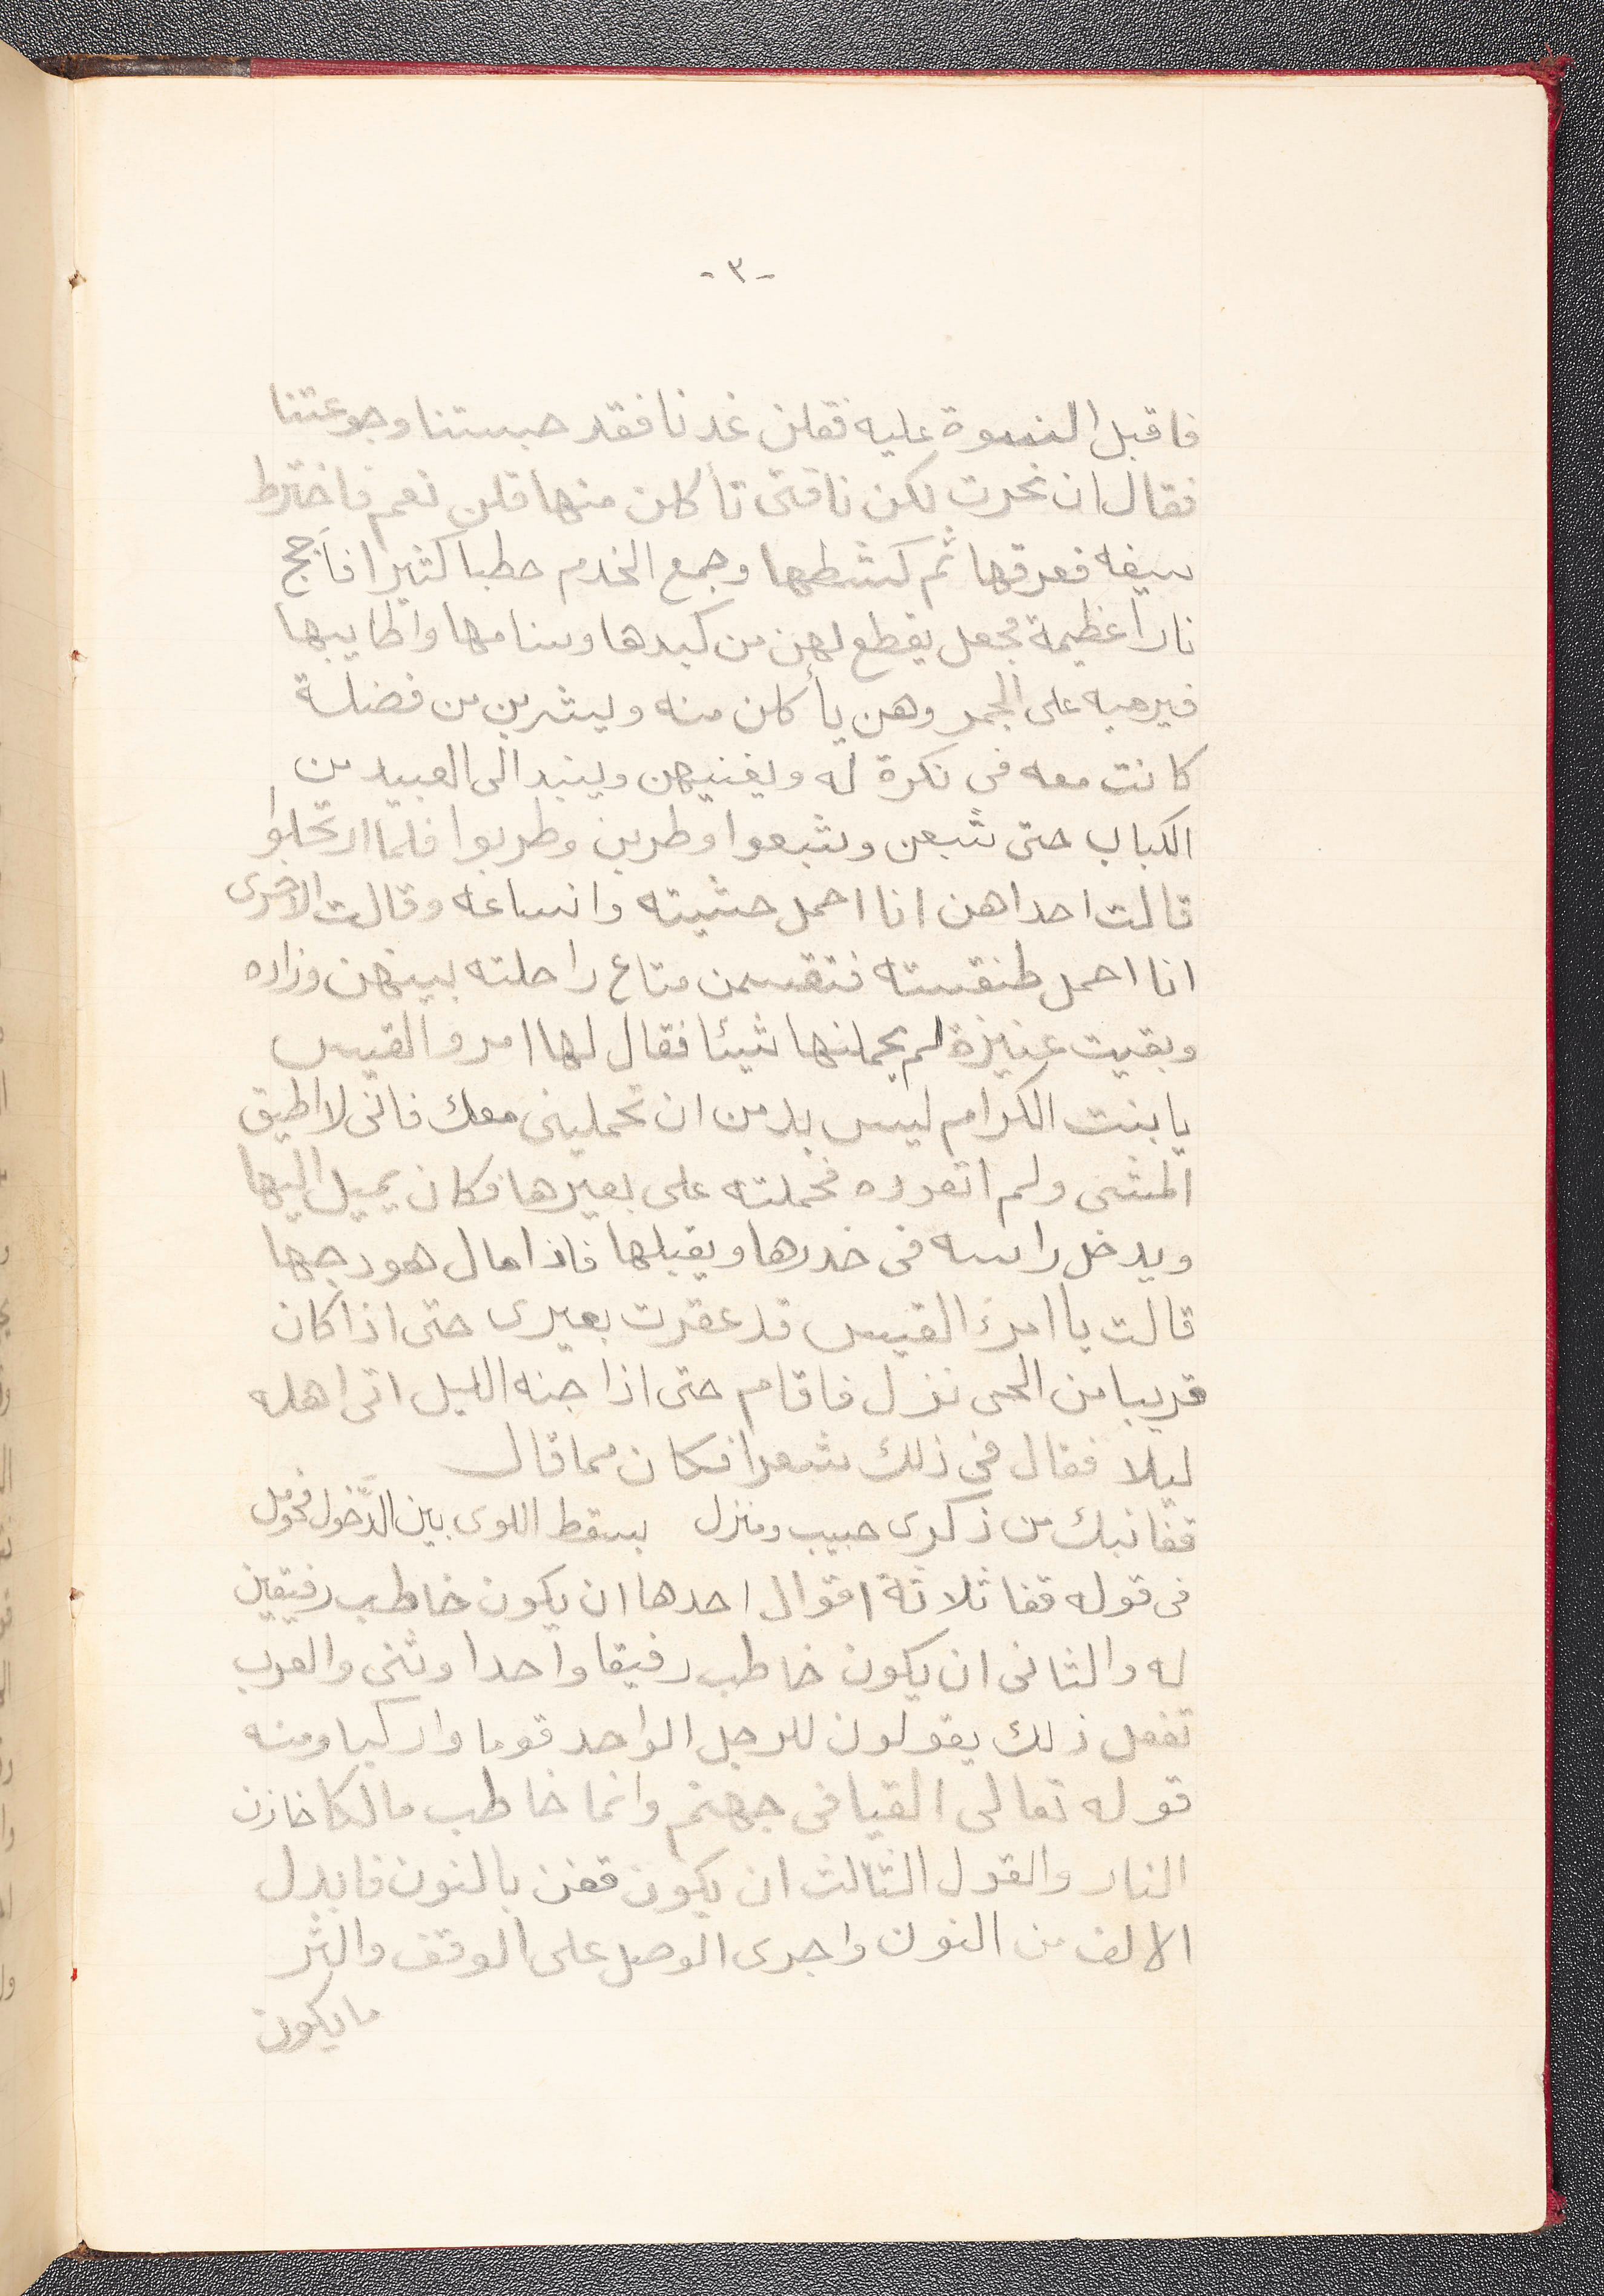 -٣-
فاقبل النسوة عليه فقلن غدنا فقد حبستنا وجوعتنا
فقال ان نحرت لكن ناقتى تأكلن منها قلن نعم فاخترط
سيفه فعرقها ثم كشطها وجمع الخدم حطبا كثيرا فأجج
نارا عظيمة فجعل يقطع لهن من كبدها وسنامها واطايبها
فيرميه على الجمر وهن يأكلن منه ويشربن من فضلة
كانت معه فى نكرة له ويغنيهن وينبد الى العبيد من
الكباب حتى شبعن وشبعوا وطربن وطربوا فلما ارتحلوا
قالت احداهن انا احمل حشيته وانساعه وقالت الاخرى
انا احمل طنفسته فتقسمن متاع راحلته بينهن وزاده
وبقيت عنيزة لم يحملنها شيئا فقال لها امرو القيس
يا بنت الكرام ليس بد من ان تحملينى معك فانى لا اطيق
المشى ولم اتعوده فحملته على بعيرها فكان يميل اليها
ويدخل راسه فى خدرها ويقبلها فاذا مال هودجها
قالت يا امرئ القيس قد عقرت بعيرى حتى اذا كان
قريبا من الحى نزل فاقام حتى اذا جنه الليل اتى اهله
ليلا فقال فى ذلك شعرا فكان مما قال
قفا نبك من ذكرى حبيب ومنزل بسقط اللوى بين الدَّخول فحومل
فى قوله قفا ثلاثة اقوال احدها ان يكون خاطب رفيقين
له والثانى ان يكون خاطب رفيقا واحدا وثنى والعرب
تفعل ذلك يقولون للرجل الواحد قوما واركبا ومنه
قوله تعالى القيا فى جهنم وانما خاطب مالكا خازن
النار والقول الثالث ان يكون قفن بالنون فابدل
الالف من النون واجرى الوصل على الوقف واكثر
ما يكون